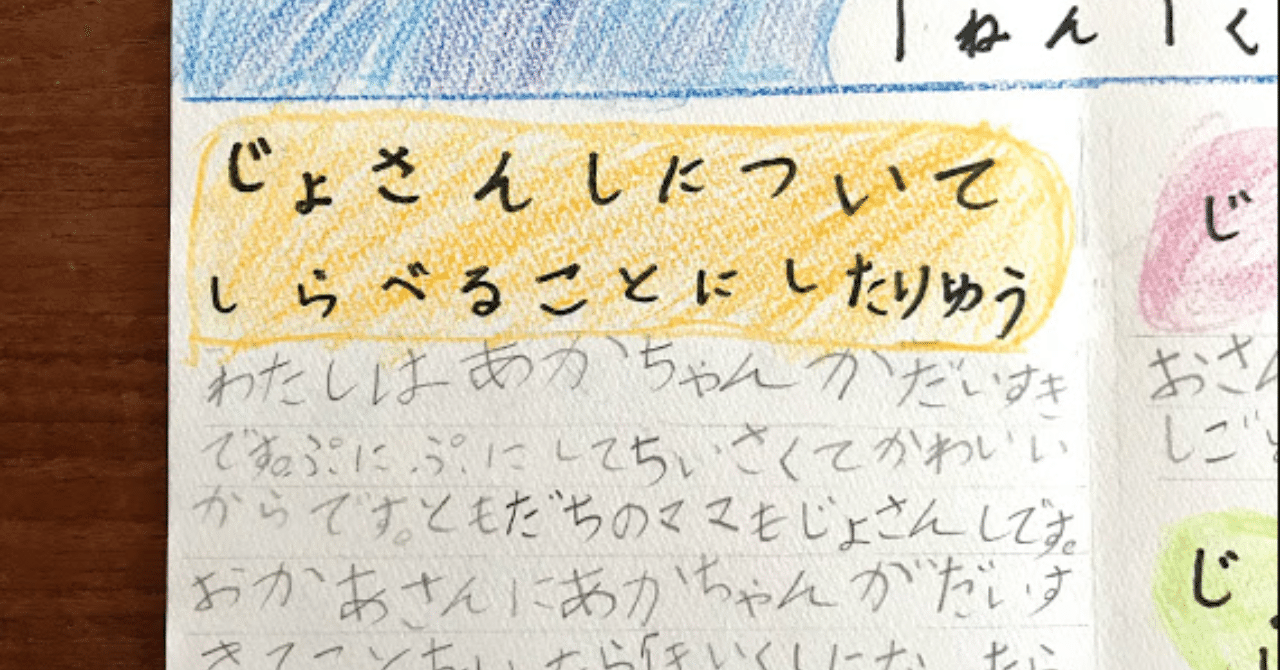 1ねん1く
じょさんしについて
しらべることにしたりゆう
わたしはあかちゃんがだいすき
です。ぷにぷにしてちいさくてかわいい
からです。ともだちのママもじょさんしです。
おかあさんにあかちゃんがだいす
じ
おさん
しごと
じょ